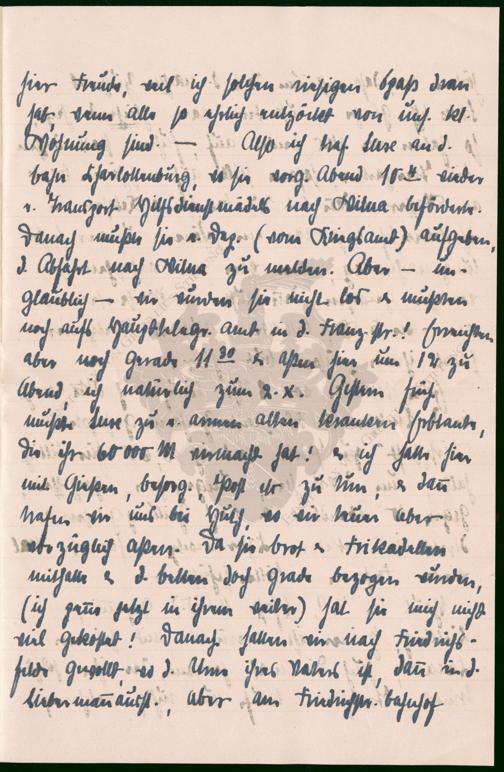 hier Freude, weil ich solchen riesigen Spaß dran
hab, wenn alle so ehrlich entzückt von uns. kl.
Wohnung sind. — Also ich traf Luse an d.
bahn Charlottenburg, wo sie vorg. Abend 10 wieder
e. Transport Hilfsdienstmädels nach Wilna beförderte.
Danach mußte sie e. Dep. (vom Kriegsamt) aufgeben,
d. Abfahrt nach Wilna zu melden. Aber — un-
glaublich — wir wurden sie nicht los & mußten
noch aufs Haupttelegr. amt in d. Franz. str.! Erreichten
aber noch gerade 11 30 & aßen hier um 12 zu
Abend, ich natürlich zum 2. x. Gestern früh
mußte Luse zu e. armen alten kranken Erbtante,
die ihr 60 000 M vermacht hat! & ich hatte hier
mit Gießen, besorg., Post etc zu tun, & dann
trafen wir uns bei Huth, wo wir teuer aber
vorzüglich aßen. Da sie brot & Frikadellen
mithatte & d. betten doch grade bezogen wurden,
(ich penn jetzt in ihrem weiter) hat sie mich nicht
viel gekostet! Danach hatten wir nach Friedrichs-
felde gewollt, wo d. Urne ihres Vaters ist, dann in d.
Liebermannausst., aber am Friedrichstr. bahnhof